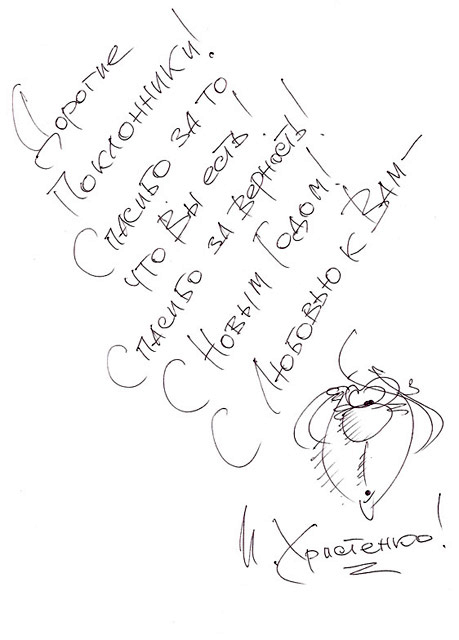 Дорогие
Поклонники!
Спасибо за то
что Вы есть!
Спасибо за верность!
С Новым Годом!
С Любовью к Вам –
И Христенко!